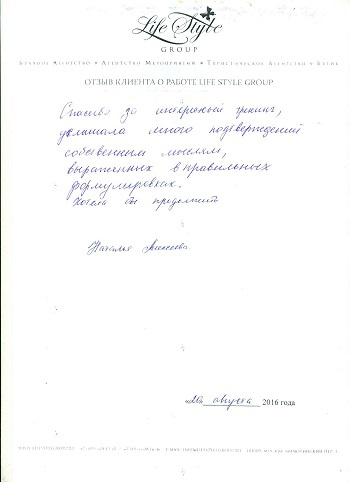 Life Style
GROUP
Брачное Агентство • Агентство Мероприятий • Туристическое Агентство
ОТЗЫВ КЛИЕНТА О РАБОТЕ LIFE STYLE GROUP
Спасибо за интересный тренинг,
услышала много подтверждений
собственным мыслям,
выраженных в правильных
формулировках.
Хотела бы продолжить
Наталья
августа 2016 года